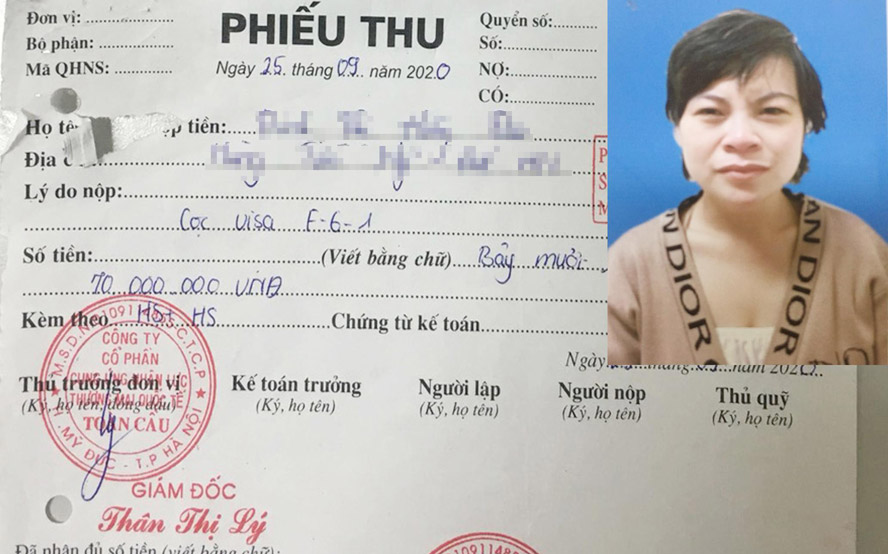 Đơn vị:
Bộ phận:
Mã QHNS:
PHIẾU THU
Ngày 25 tháng 09 năm 2020
Quyển số:
Số:
NỢ:
CÓ:
Họ tên nộp tiền:
Địa
Lý do nộp:
Cọc visa F-6-1
Số tiền: (Viết bằng chữ) Bảy mươi
70.000.000 VNĐ
Kèm theo HS Chứng từ kế toán
Ngày 25 tháng 09 năm 2020
Thủ trưởng đơn vị
(Ký, họ tên, đóng dấu)
Kế toán trưởng
(Ký, họ tên)
Người lập
(Ký, họ tên)
Người nộp
(Ký, họ tên)
Thủ quỹ
(Ký, họ tên)
CÔNG TY
CỔ PHẦN
CUNG ỨNG NHÂN LỰC
THƯƠNG MẠI QUỐC TẾ
TOÀN CẦU
H.MỸ ĐỨC - T.P HÀ NỘI
GIÁM ĐỐC
Thân Thị Lý
Đã nhận đủ số tiền (viết bằng chữ):
AN DIOR
AN DIOR